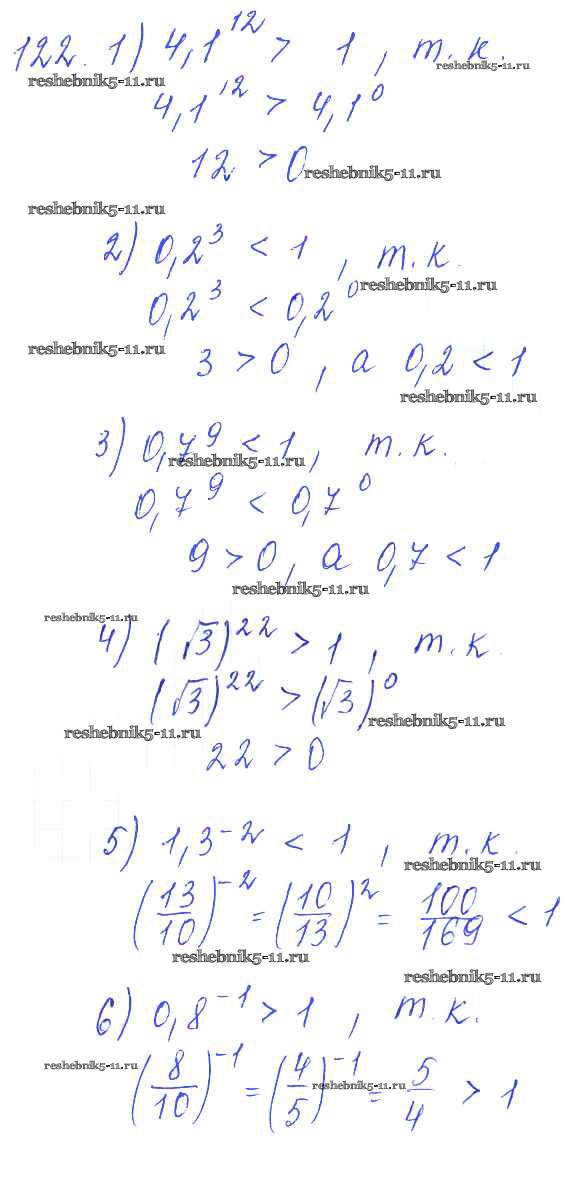 122. 1) 4,1¹² > 1, т.к.
reshebnik5-11.ru reshebnik5-11.ru
4,1¹² > 4,1⁰
12 > 0 reshebnik5-11.ru
reshebnik5-11.ru
2) 0,2³ < 1, т.к.
0,2³ < 0,2⁰ reshebnik5-11.ru
reshebnik5-11.ru
3 > 0, а 0,2 < 1
reshebnik5-11.ru
3) 0,7⁹ < 1, т.к.
reshebnik5-11.ru
0,7⁹ < 0,7⁰
9 > 0, а 0,7 < 1
reshebnik5-11.ru
reshebnik5-11.ru
4) (√3)²² > 1, т.к.
(√3)²² > (√3)⁰
reshebnik5-11.ru reshebnik5-11.ru
22 > 0
5) 1,3⁻² < 1, т.к.
reshebnik5-11.ru
(13/10)⁻² = (10/13)² = 100/169 < 1
reshebnik5-11.ru
reshebnik5-11.ru
6) 0,8⁻¹ > 1, т.к.
reshebnik5-11.ru reshebnik5-11.ru
(8/10)⁻¹ = (4/5)⁻¹ = 5/4 > 1